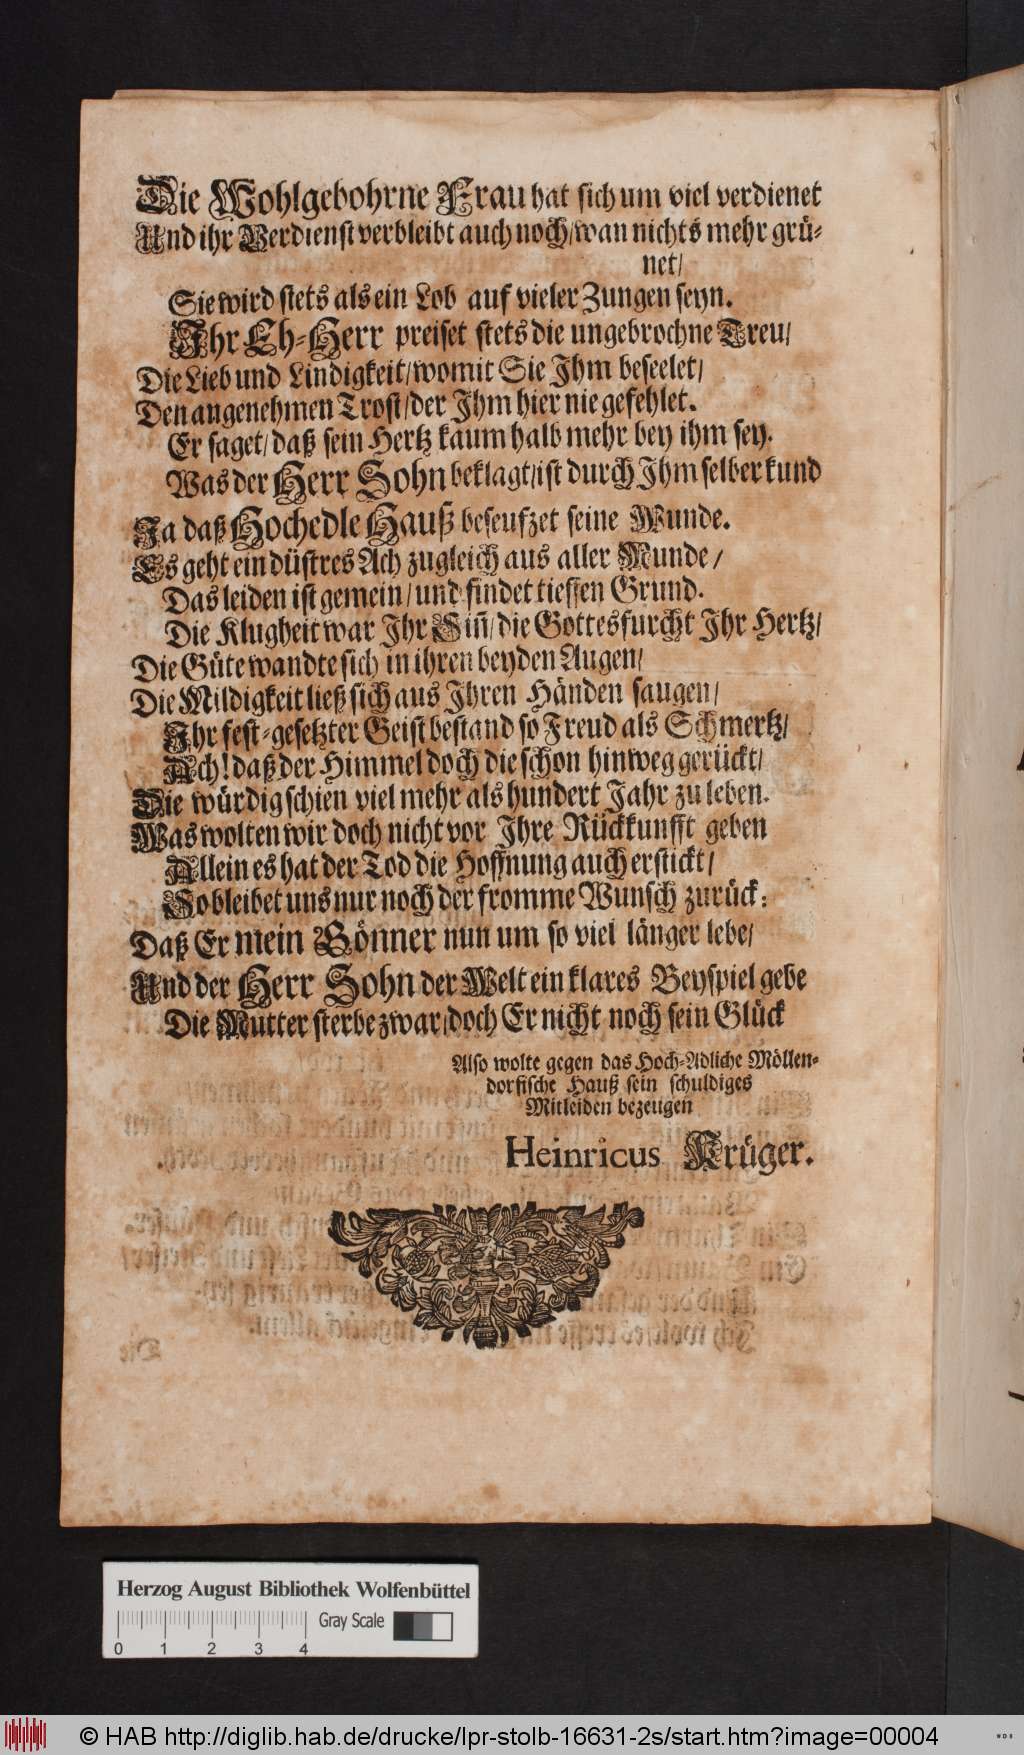 Die Wohlgebohrne Frau hat sich um viel verdienet
Und ihr Verdienst verbleibt auch noch/wan nichts mehr grü-
net/
Sie wird stets als ein Lob auf vieler Zungen seyn.
Ihr Eh-Herr preiset stets die ungebrochne Treu/
Die Lieb und Lindigkeit/womit Sie Ihm beseelet/
Den angenehmen Trost/der Ihm hier nie gefehlet.
Er saget/daß sein Hertz kaum halb mehr bey ihm sey.
Was der Herr Sohn beklagt/ist durch Ihm selber kund
Ja daß Hochedle Hauß beseufzet seine Wunde.
Es geht ein düstres Ach zugleich aus aller Munde/
Das leiden ist gemein/und findet tieffen Grund.
Die Klugheit war Ihr Siñ/die Gottesfurcht Ihr Hertz/
Die Güte wandte sich in ihren beyden Augen/
Die Mildigkeit ließ sich aus Ihren Händen saugen/
Ihr fest-gesetzter Geist bestand so Freud als Schmertz/
Ach! daß der Himmel doch die schon hinweg gerückt/
Die würdig schien viel mehr als hundert Jahr zu leben.
Was wolten wir doch nicht vor Ihre Rückkunfft geben
Allein es hat der Tod die Hoffnung auch erstickt/
So bleibet uns nur noch der fromme Wunsch zurück:
Daß Er mein Gönner nun um so viel länger lebe/
Und der Herr Sohn der Welt ein klares Beyspiel gebe
Die Mutter sterbe zwar/doch Er nicht noch sein Glück
Also wolte gegen das Hoch-Adliche Möllen-
dorfische Hauß sein schuldiges
Mitleiden bezeugen
Heinricus Krüger.
Herzog August Bibliothek Wolfenbüttel
Gray Scale
0 1 2 3 4
© HAB http://diglib.hab.de/drucke/lpr-stolb-16631-2s/start.htm?image=00004